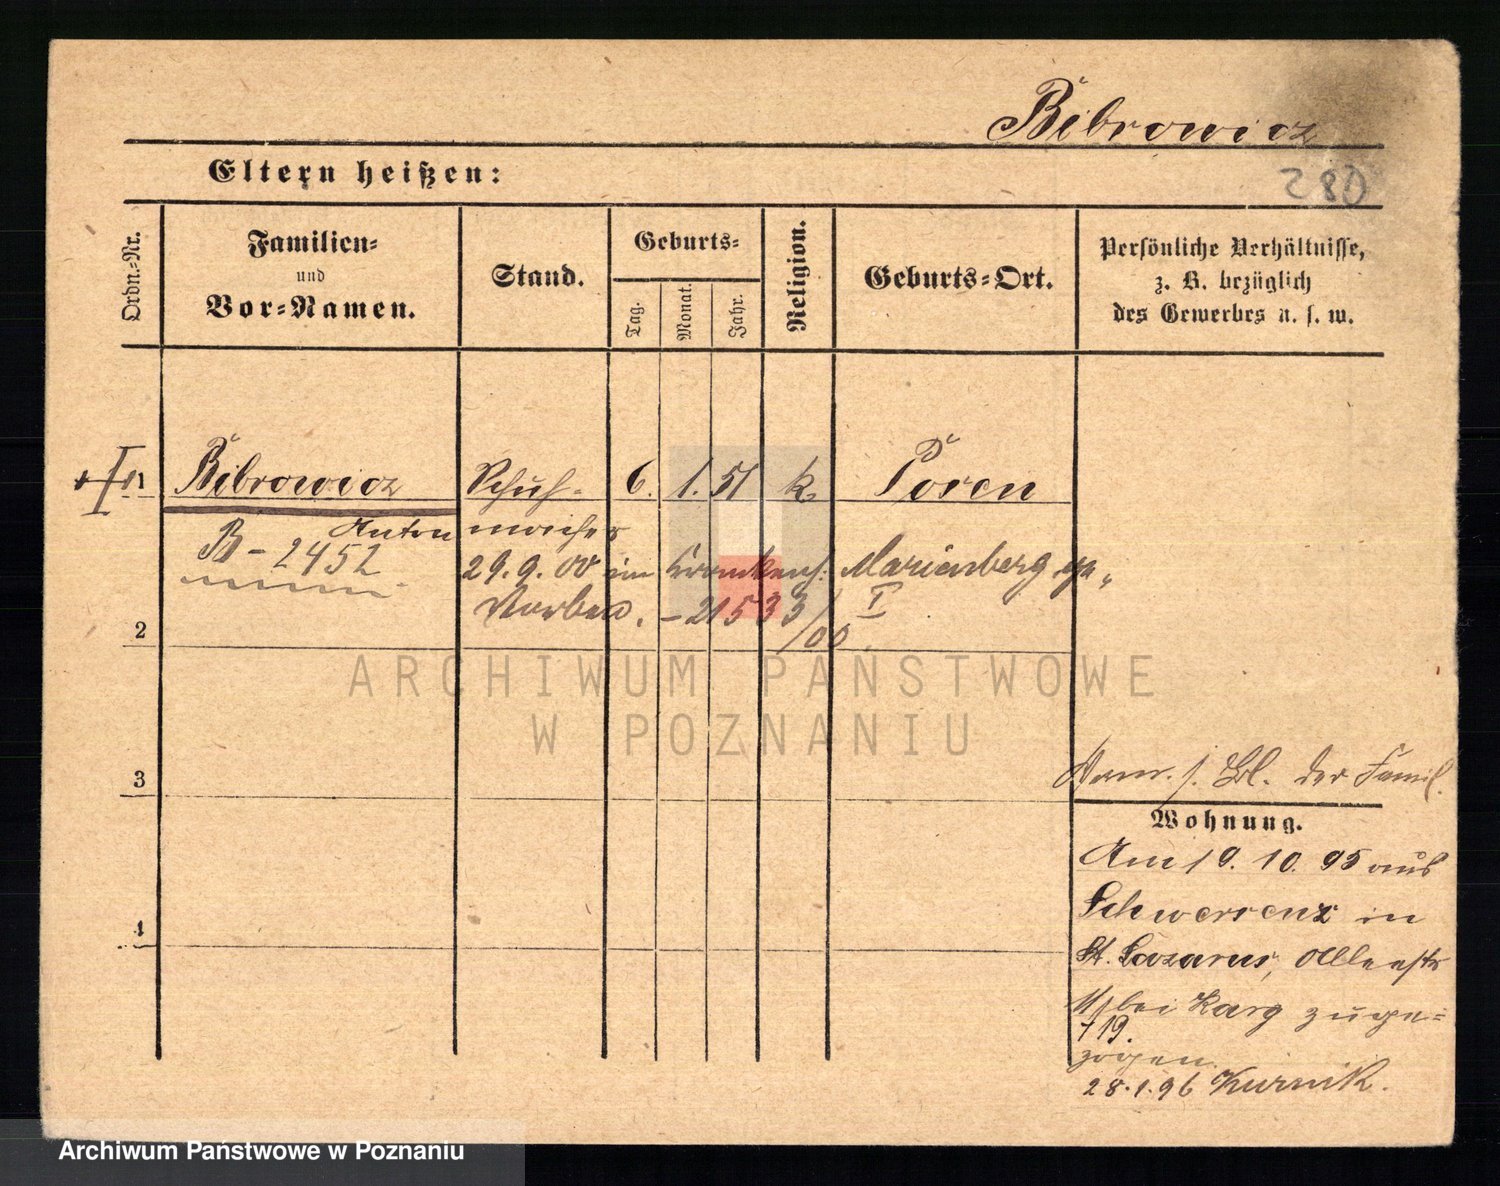 Bibrowicz
Eltern heißen:
280
Ordn.-Nr.
Familien-
und
Vor-Namen.
Stand.
Geburts-
Tag.
Monat.
Jahr.
Religion.
Geburts-Ort.
Persönliche Verhältnisse,
z. B. bezüglich
des Gewerbes u. s. w.
1 Bibrowicz Schuh- 6. 1. 51 k. Posen
Anton macher
B - 2452
29. 9. 00 im Krankenh. Marienberg ge„
storben. - 21533/00 I
2
ARCHIWUM PAŃSTWOWE
W POZNANIU
3
Verm. s. Bl. der Famil.
Wohnung.
Am 19. 10. 95 aus
Schwersenz in
St. Lazarus, Allenstr
11/ bei Karg zuge=
719.
zogen.
28.1.96 Kurnik.
4
Archiwum Państwowe w Poznaniu